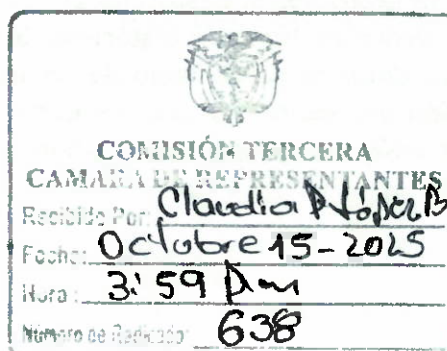 COMISIÓN TERCERA
CAMARA DE REPRESENTANTES
Recibido Por: Claudia P López B
Fecha: Octubre 15-2025
Hora: 3:59 pm
Número de Radicado: 638